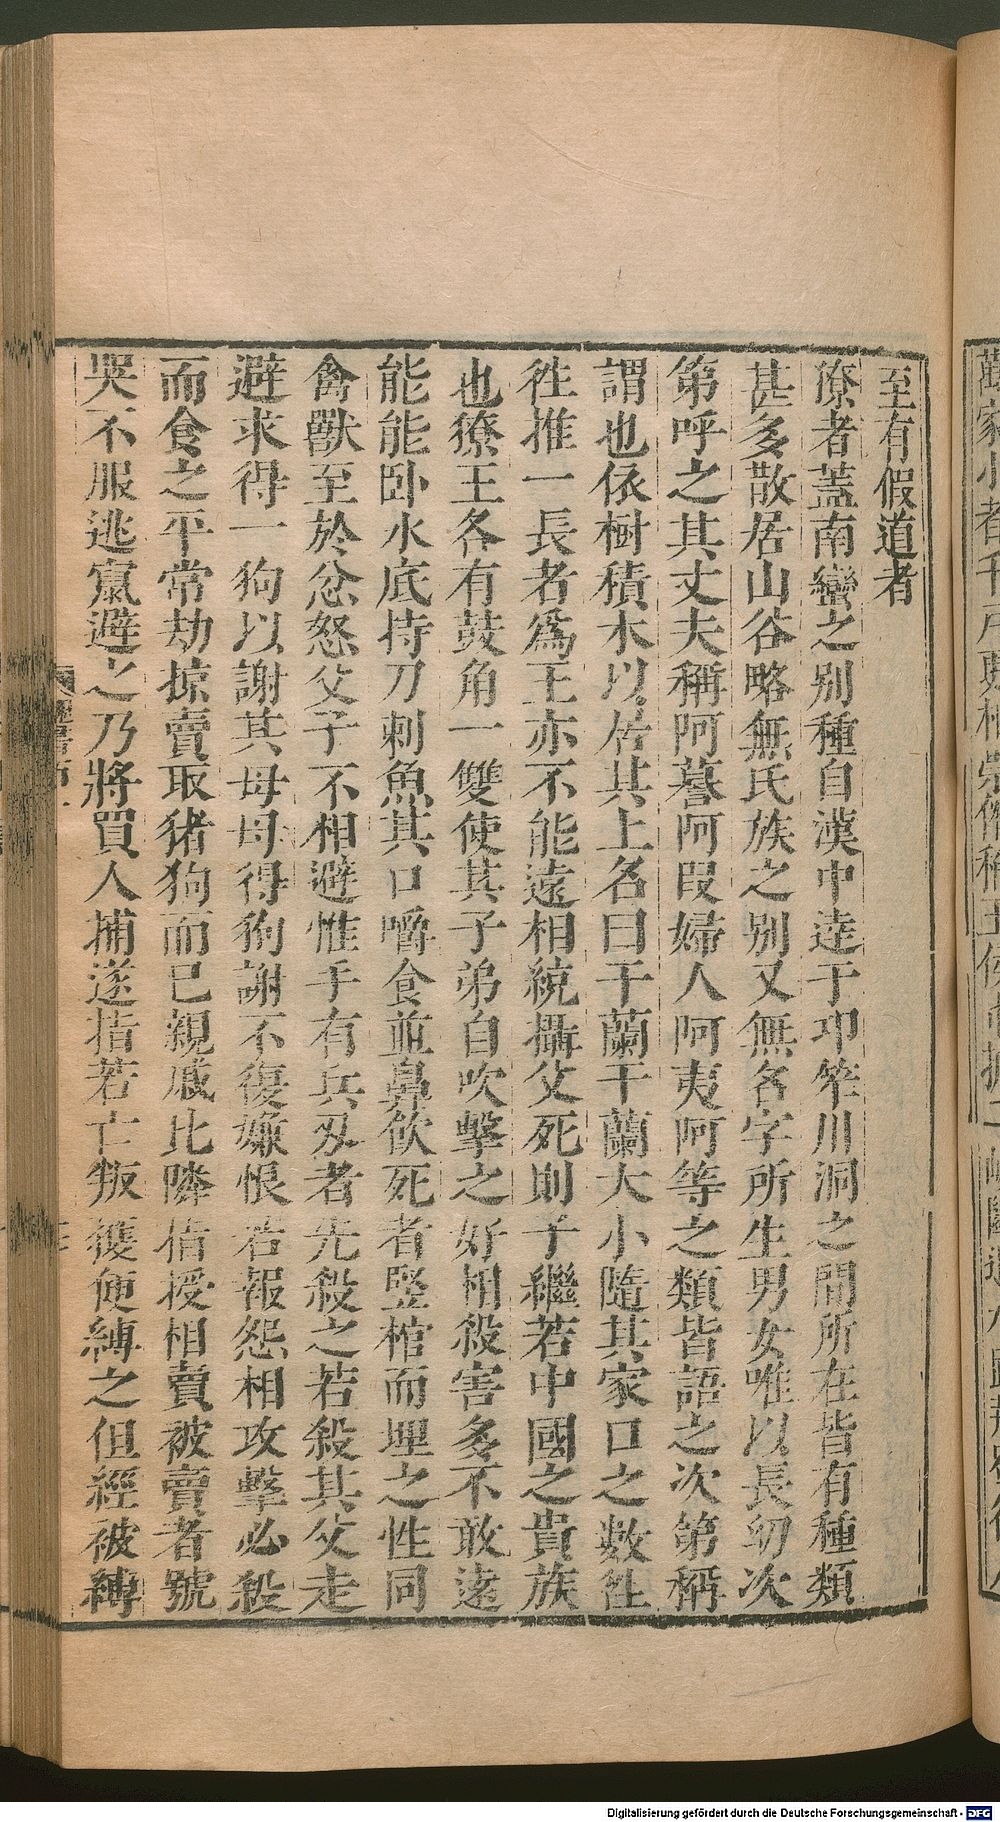 至有假道者
獠者蓋南蠻之别種自漢中逹于邛笮川洞之間所在皆有種類
甚多散居山谷略無氏族之别又無名字所生男女唯以長幼次
第呼之其丈夫稱阿謩阿段婦人阿夷阿等之類皆語之次第稱
謂也依樹積木以居其上名曰干蘭干蘭大小隨其家口之數徃
徃推一長者爲王亦不能遠相統攝父死則子繼若中國之貴族
也獠王各有鼓角一雙使其子弟自吹擊之好相殺害多不敢遠
能能卧水底持刀刺魚其口嚼食並鼻飲死者竪棺而埋之性同
禽獸至於忿怒父子不相避惟手有兵刄者先殺之若殺其父走
避求得一狗以謝其母母得狗謝不復嫌恨若報怨相攻擊必殺
而食之平常劫掠賣取猪狗而已親戚比隣指授相賣被賣者號
哭不服逃竄避之乃將買人捕逐指若亡叛獲便縛之但經被縛
Digitalisierung gefördert durch die Deutsche Forschungsgemeinschaft - DFG